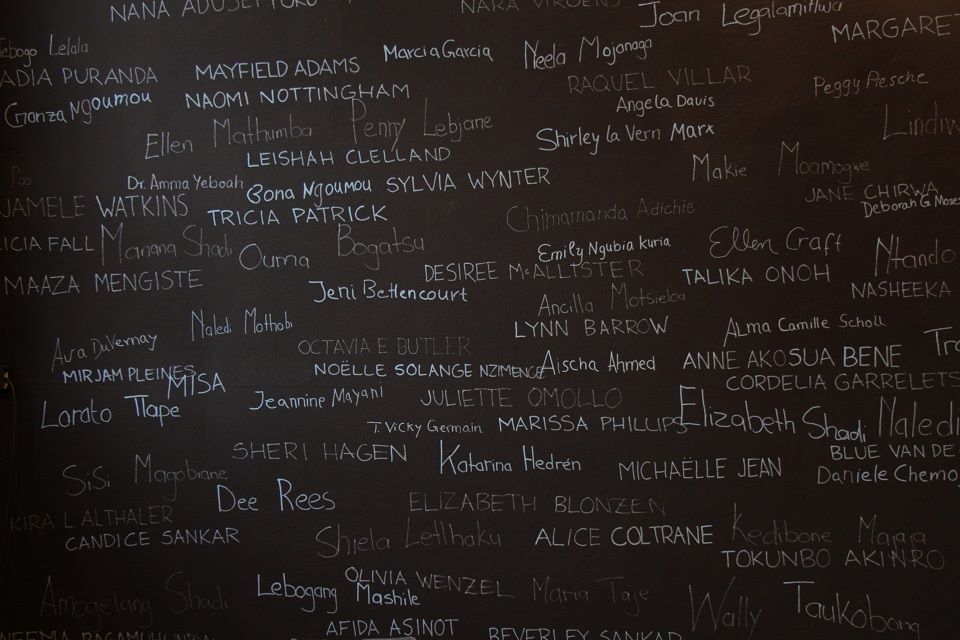 NANA ADUSEI POKU
NARA VIROENS
Joan Legalamitlwa
MARGARET
Tebogo Lelala
Marcia Garcia
Neela Mojanaga
ADIA PURANDA
MAYFIELD ADAMS
RAQUEL VILLAR
Peggy Piesche
Ganza Ngoumou
NAOMI NOTTINGHAM
Angela Davis
Ellen Mathumba
Penny Lebjane
Shirley la Vern Marx
Lindiw
LEISHAH CLELLAND
Makie Moamogwe
Dr. Amma Yeboah
Bona Ngoumou
SYLVIA WYNTER
JANE CHIRWA
JAMELE WATKINS
TRICIA PATRICK
Chimamanda Adichie
Deborah G. Moses
ICIA FALL
Manana Shadi
Ouma Bogatsu
Emily Ngubia Kuria
Ellen Craft
Ntando
MAAZA MENGISTE
DESIREE McALLISTER
TALIKA ONOH
NASHEEKA
Jeni Bettencourt
Ancilla Motsieloa
Naledi Mothobi
LYNN BARROW
Alma Camille Scholl
Ava DuVernay
OCTAVIA E BUTLER
ANNE AKOSUA BENE
MIRJAM PLEINES
MISA
NOËLLE SOLANGE NZIMENGE
Aischa Ahmed
CORDELIA GARRELETS
Lorato Tlape
Jeannine Mayani
JULIETTE OMOLLO
Elizabeth Shadi
Naledi
T. Vicky Germain
MARISSA PHILLIPS
SHERI HAGEN
Katarina Hedrén
MICHAËLLE JEAN
BLUE VAN DE
SiSi Magobiane
Daniele Chemo
Dee Rees
ELIZABETH BLONZEN
KIRA L ALTHALER
CANDICE SANKAR
Shiela Letlhaku
ALICE COLTRANE
Kedibone Majaja
TOKUNBO AKINRO
Amogelang Shadi
Lebogang Mashile
OLIVIA WENZEL
Maria Taje
Wally
Taukobong
AFIDA ASINOT
BEVERLEY SANKAR